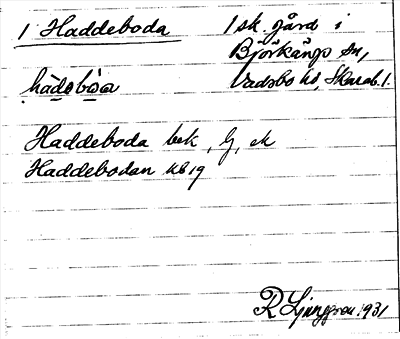 1 Haddeboda 1 sk. gård i
Björkängs sn,
hàdebòa Vadsbo hd, Skarab. l.
Haddeboda bek, G, ek
Haddebodan KB 19
R Ljunggren 1931